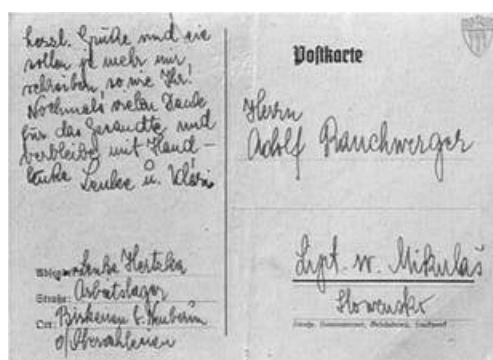 herzl. Grüße und sie
sollen je mehr mir
schreiben, so wie Ihr!
Nochmals vielen Danke
für das Gesandte und
verbleibe mit Hand-
Lenke u. Klári
Lenke Hertzka
Straße: Arbeitslager
Ort: Birkenau b. Neuberun
o/Oberschlesien
Postkarte
Herrn
Adolf Rauchwerger
Lipt. sv. Mikuláš
Slowensko